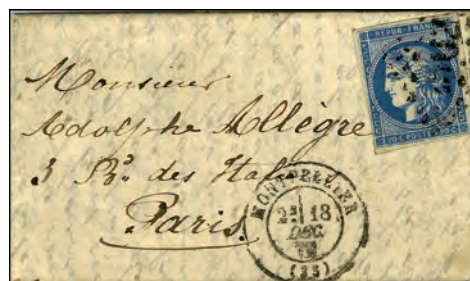 REPUB. FRANC.
20 C POSTES 20 C
Monsieur
Adolphe Allègre
3 Bd. des Ital
Paris
MONTPELLIER
2E 18
DEC.
(33)